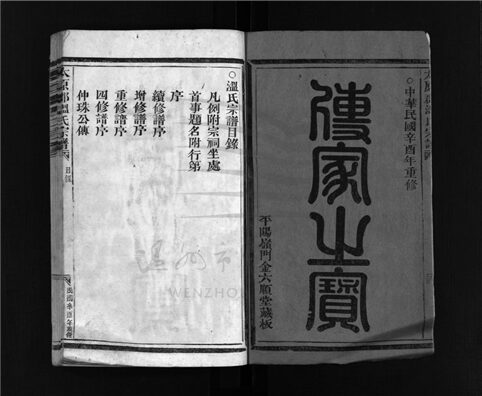 中華民國辛酉年重修
傳家之寶
平陽嶺門金六順堂藏板
溫氏宗譜目錄
凡例附宗祠坐處
首事題名附行第
序
續修譜序
增修譜序
重修譜序
四修譜序
仲珠公傳
太原郡溫氏宗譜
目錄
民國辛酉年重修
温州市
WENZHO